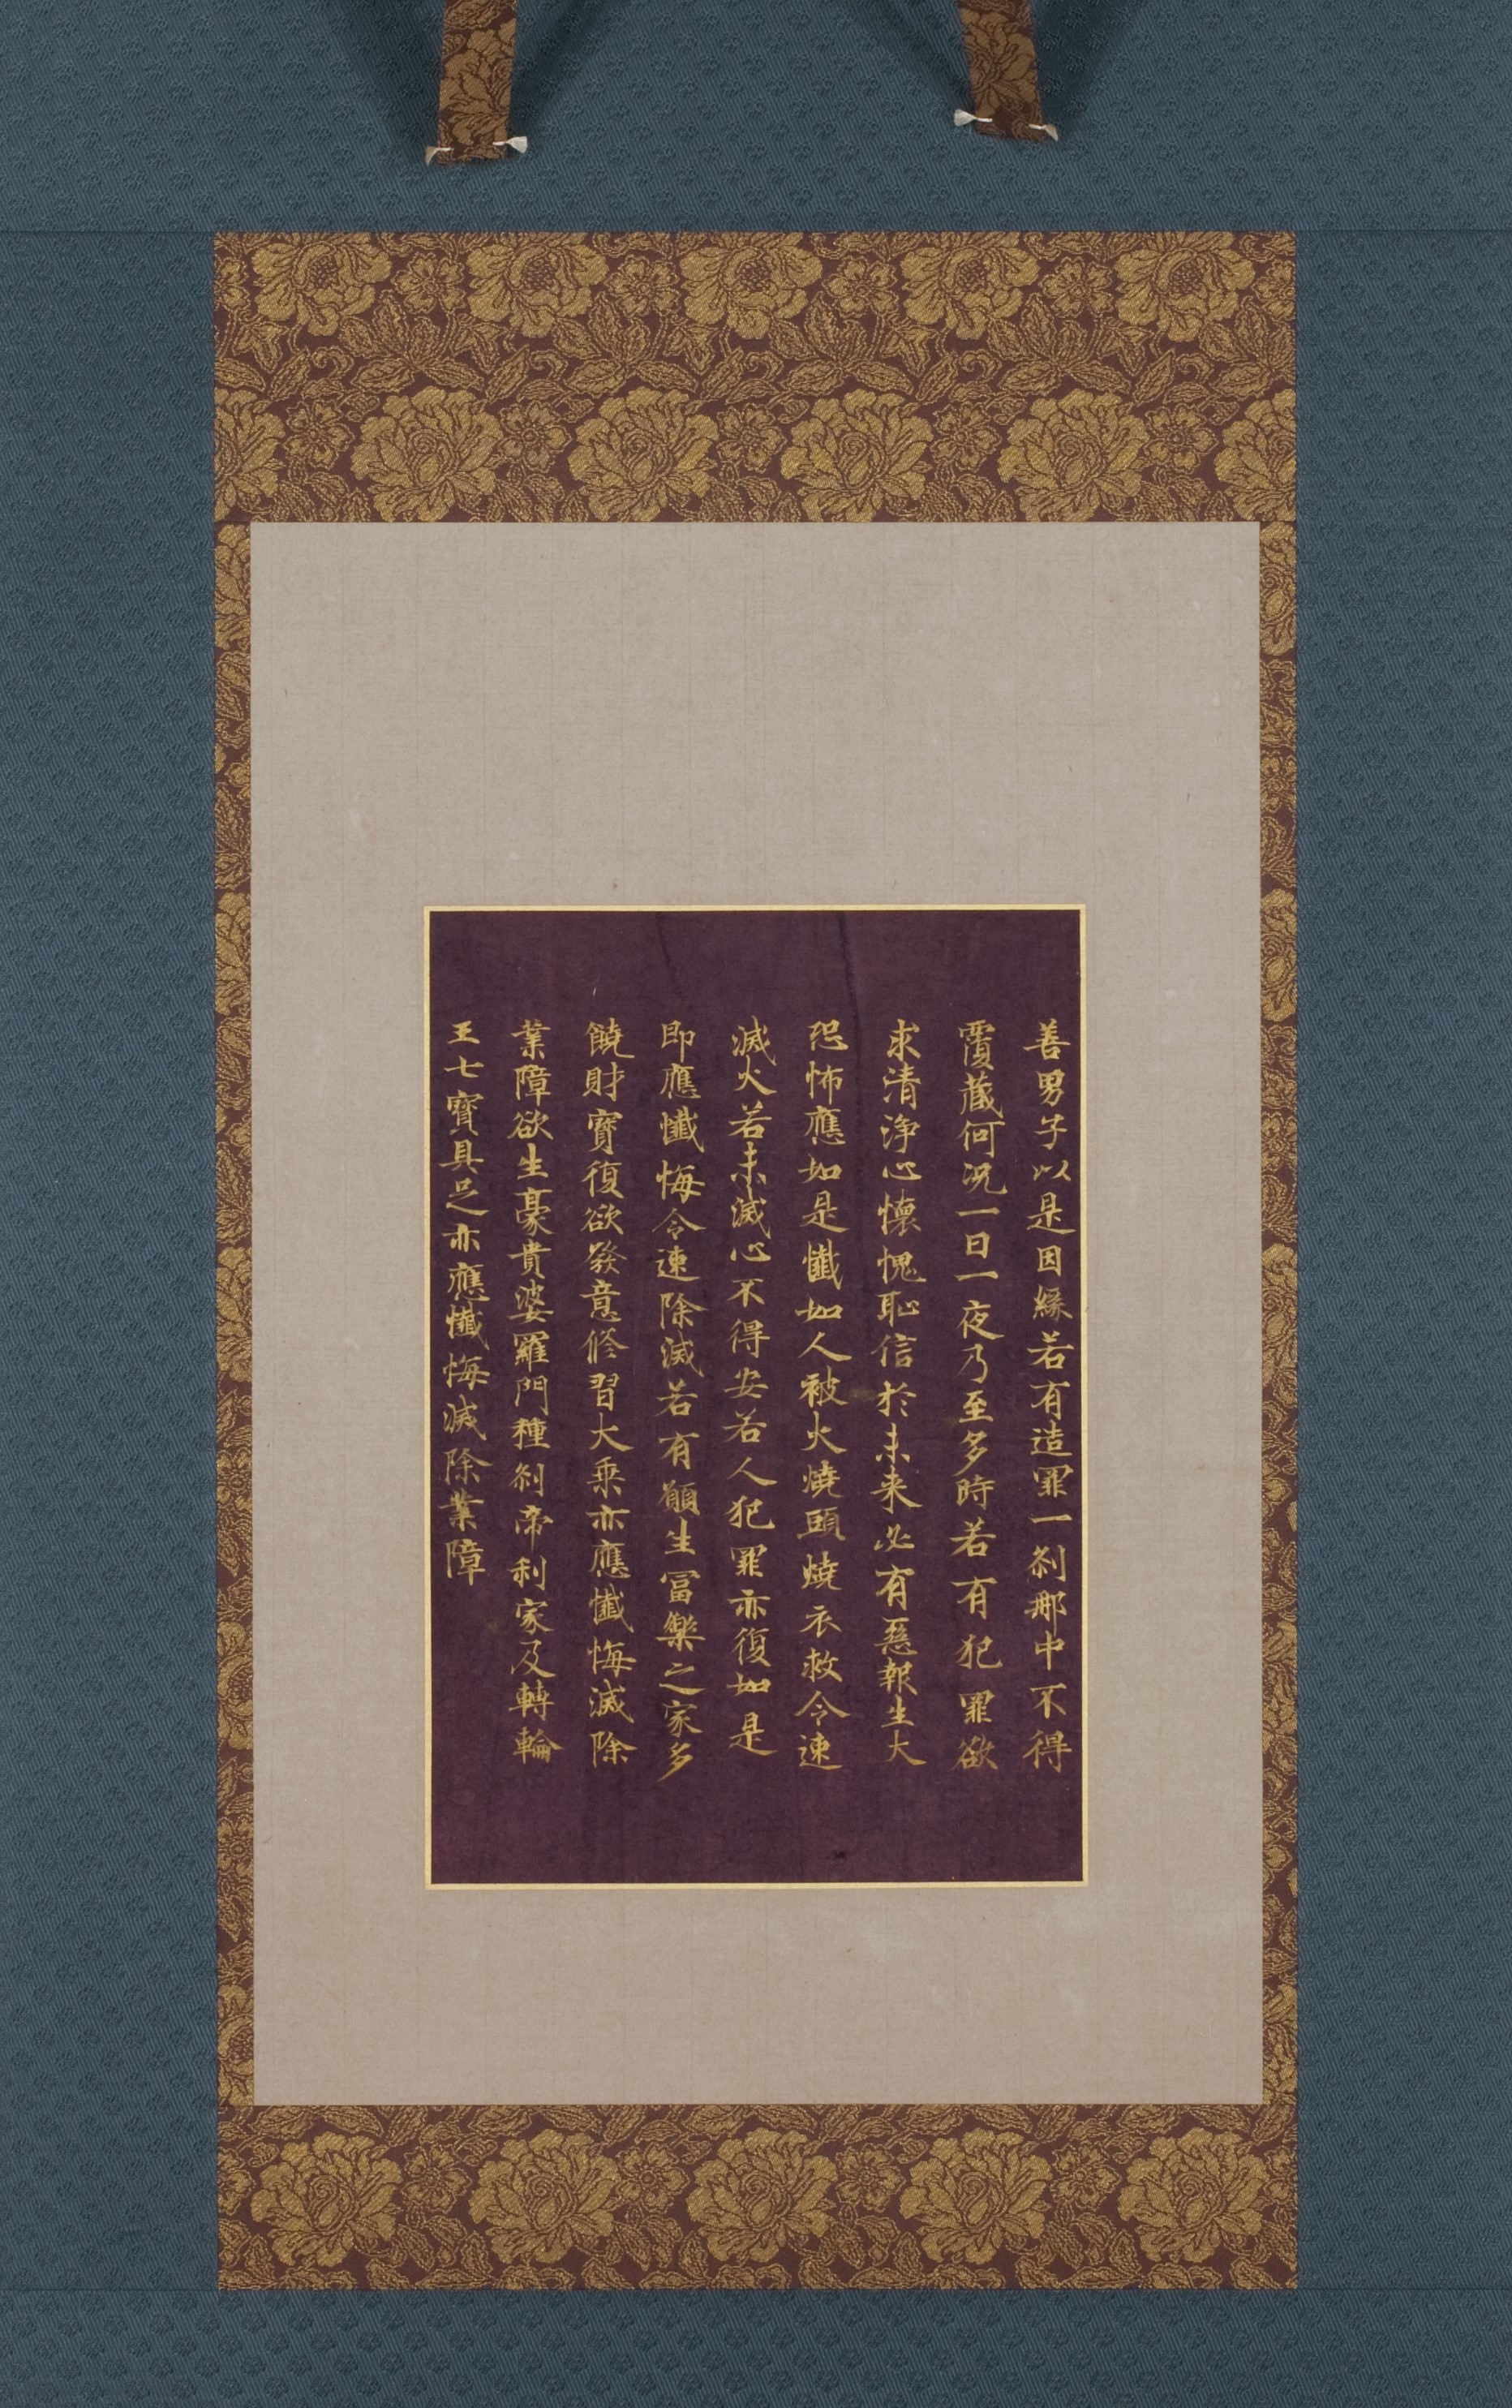 善男子以是因緣若有造罪一刹那中不得
覆藏何況一日一夜乃至多時若有犯罪欲
求清淨心懷愧恥信於未来必有惡報生大
恐怖應如是懺如人被火燒頭燒衣救令速
滅火若未滅心不得安若人犯罪亦復如是
即應懺悔令速除滅若有願生冨樂之家多
饒財寶復欲發意修習大乗亦應懺悔滅除
業障欲生豪貴婆羅門種刹帝利家及轉輪
王七寶具足亦應懺悔滅除業障